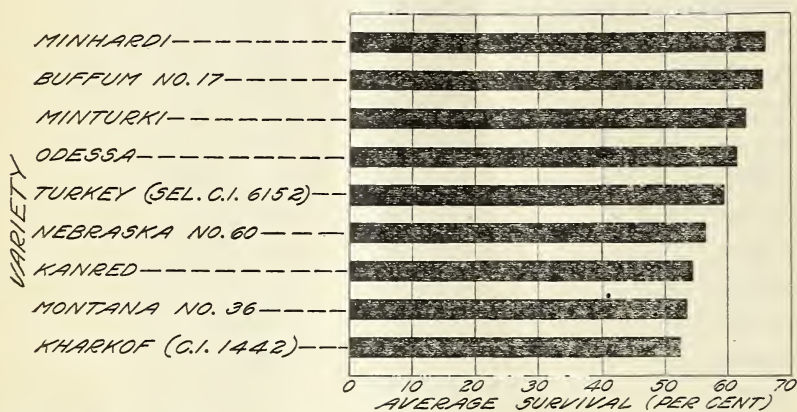 MINHARDI
BUFFUM NO. 17
MINTURKI
ODESSA
TURKEY (SEL. C.I. 6152)
NEBRASKA NO. 60
KANRED
MONTANA NO. 36
KHARKOF (C.I. 1442)
VARIETY
0 10 20 30 40 50 60 70
AVERAGE SURVIVAL (PER CENT)